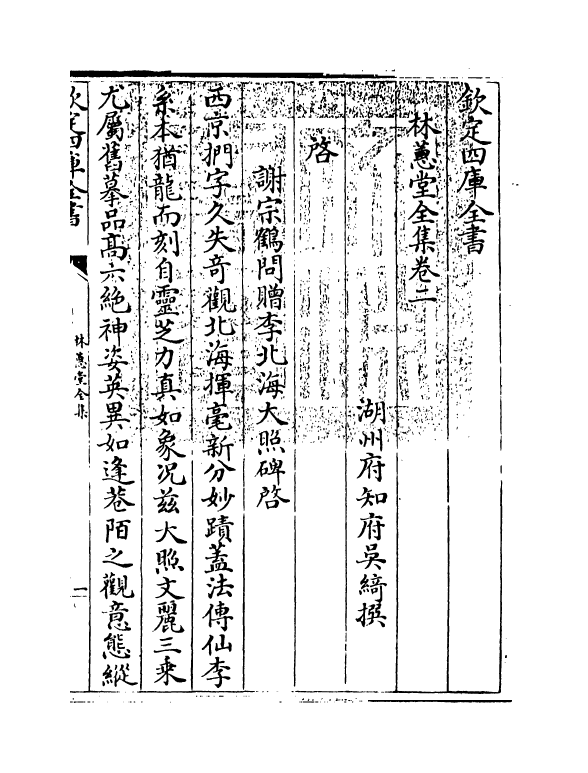 欽定四庫全書
林蕙堂全集卷二
湖州府知府吳綺撰
啓
謝宗鶴問贈李北海大照碑啓
西京捫字久失奇觀北海揮毫新分妙蹟蓋法傳仙李
系本猶龍而刻自靈芝力真如象况兹大照文麗三乗
尤屬舊摹品高六絶神姿英異如逢巷陌之觀意態縱
欽定四庫全書
林蕙堂全集
一